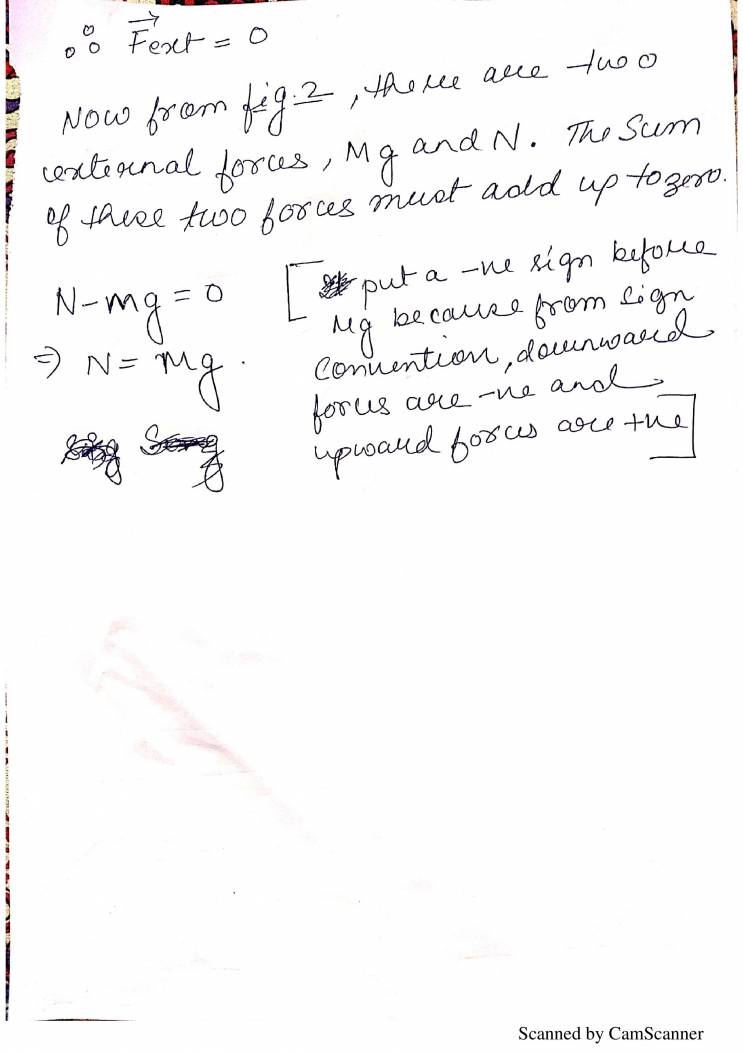 ∴ F⃗ext = 0
Now from fig.2, there are two
external forces, Mg and N. The Sum
of these two forces must add up to zero.
N-mg = 0
⇒ N = Mg.
[put a -ve sign before
Mg because from sign
convention, downward
forces are -ve and
upward forces are +ve]
Scanned by CamScanner